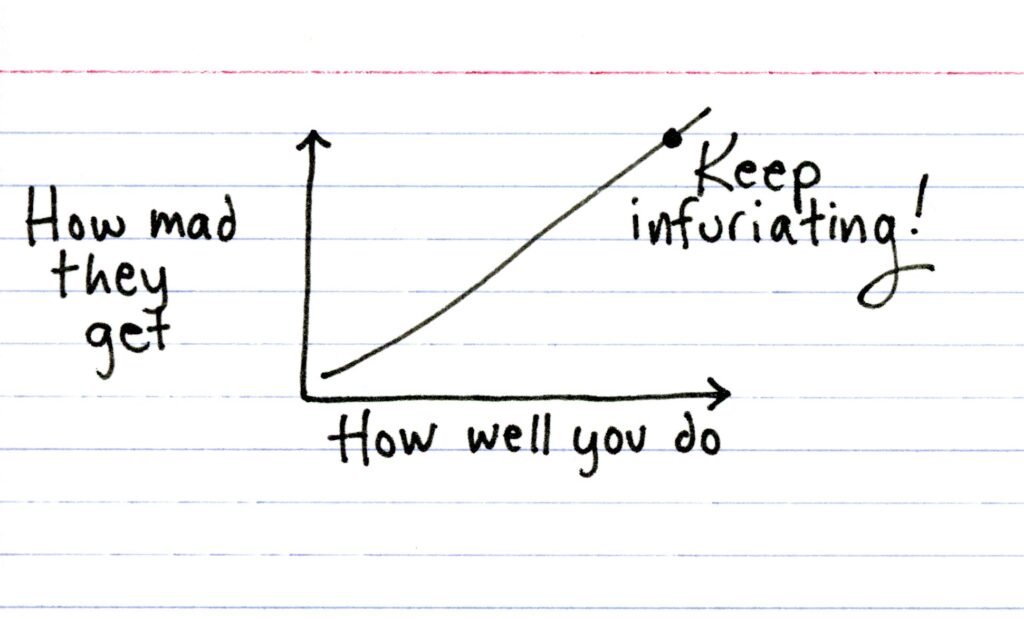 How mad
they
get
Keep
infuriating!
How well you do